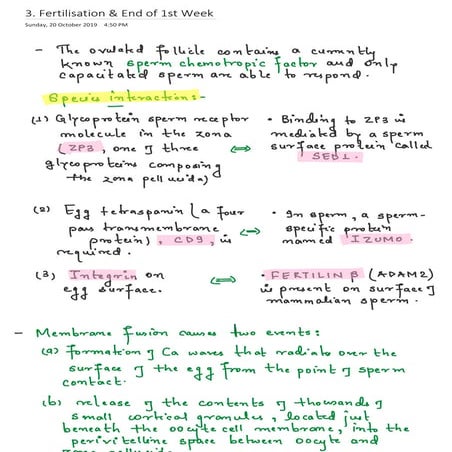 3. Fertilisation & End of 1st Week
Sunday, 20 October 2019 4:50 PM
- The ovulated follicle contains a currently
known sperm chemotropic factor and only
capacitated sperm are able to respond.
Species interactions:-
(1) Glycoprotein sperm receptor
molecule in the zona
(ZP3, one of three
glycoproteins composing
the zona pellucida)
⇔
• Binding to ZP3 is
mediated by a sperm
surface protein called
SED1.
(2) Egg tetraspanin (a four
pass transmembrane
protein), CD9, is
required.
↔
• In sperm, a sperm-
specific protein
named IZUMO.
(3) Integrin on
egg surface.
⇔
• FERTILIN β (ADAM2)
is present on surface of
mammalian sperm.
- Membrane fusion causes two events:
(a) formation of Ca waves that radiate over the
surface of the egg from the point of sperm
contact.
(b) release of the contents of thousands of
small cortical granules, located just
beneath the oocyte cell membrane, into the
perivitelline space between oocyte and